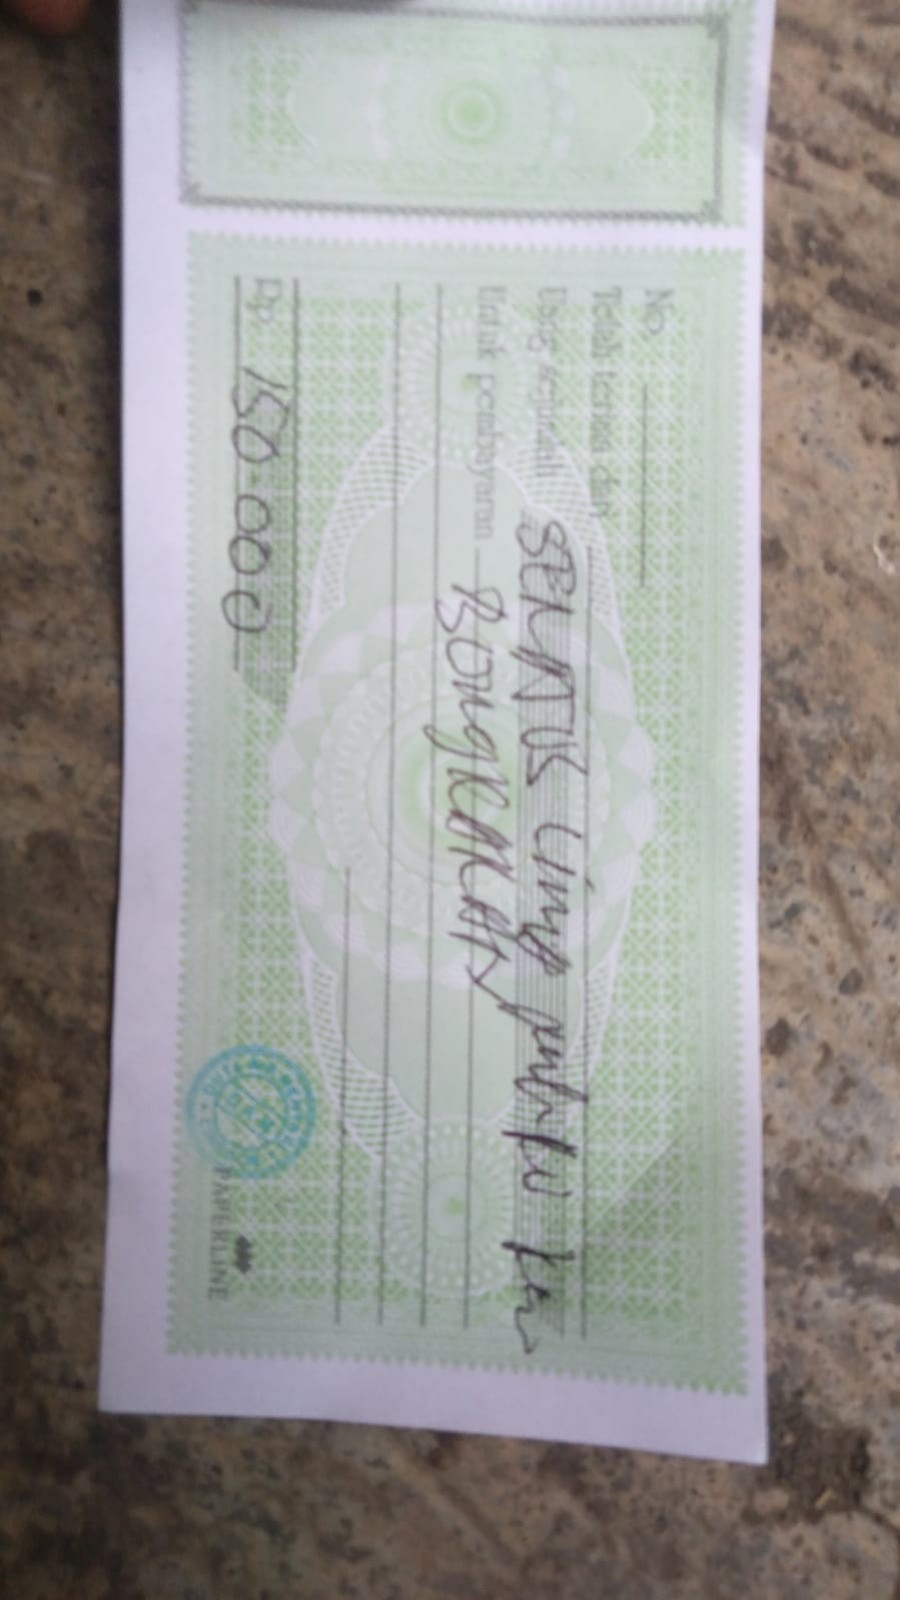 No.
Telah terima dari
Uang sejumlah SERATUS Lima puluh
Untuk pembayaran BONGKARAN
Rp. 150.000
PAPERLINE